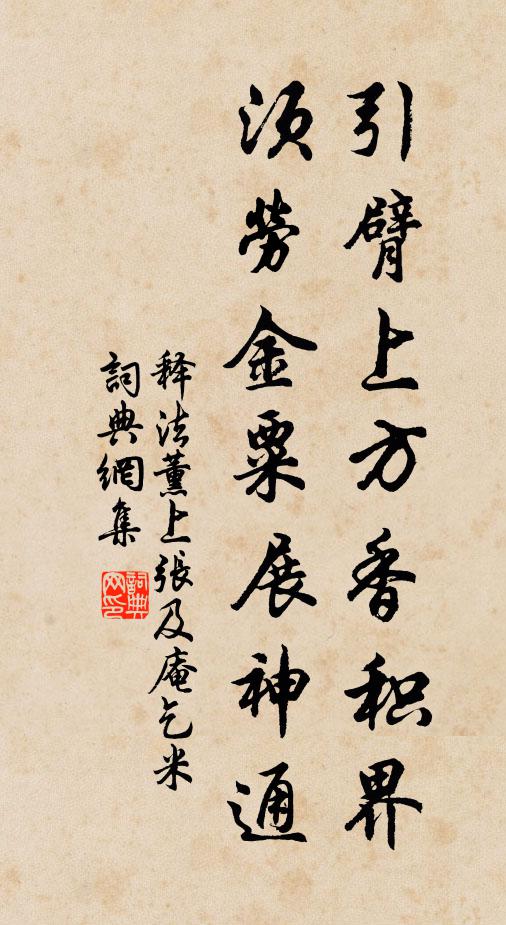 引臂上方香积界
须劳金粟展神通
释法薰上張及庵乞米
詞典網集
詞典网印